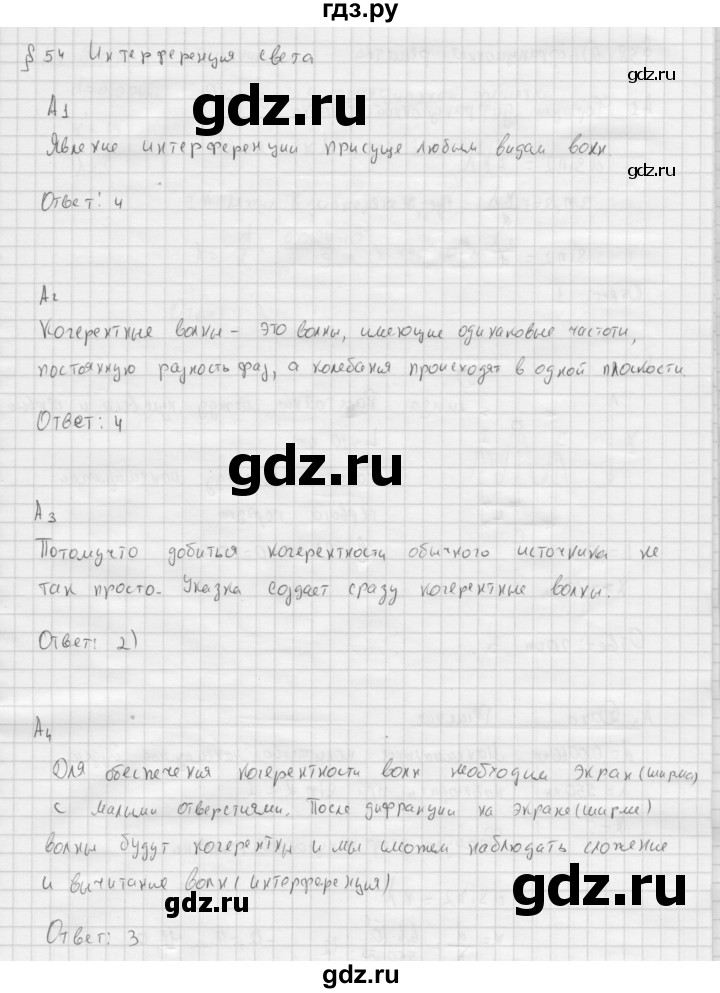 гдз.ру
§ 54 Интерференция света
gdz.ru
А1
gdz.ru
Явление интерференции присуще любым видам волн.
gdz.ru
Ответ: 4
А2
Когерентные волны - это волны, имеющие одинаковые частоти,
постоянную разность фаз, а колебания происходят в одной плоскости.
Ответ: 4
gdz.ru
А3
Потомучто добиться когерентности обычного источника не
так просто. Указка создает сразу когерентные волны.
Ответ: 2)
А4
Для обеспечения когерентности волн необходим экран(ширма)
с малыми отверстиями. После дифранции на экране(ширме)
волны будут когерентны и мы сможем наблюдать сложение
и вычитание волн(интерференция)
gdz.ru
gdz.ru
Ответ: 3
gdz.ru